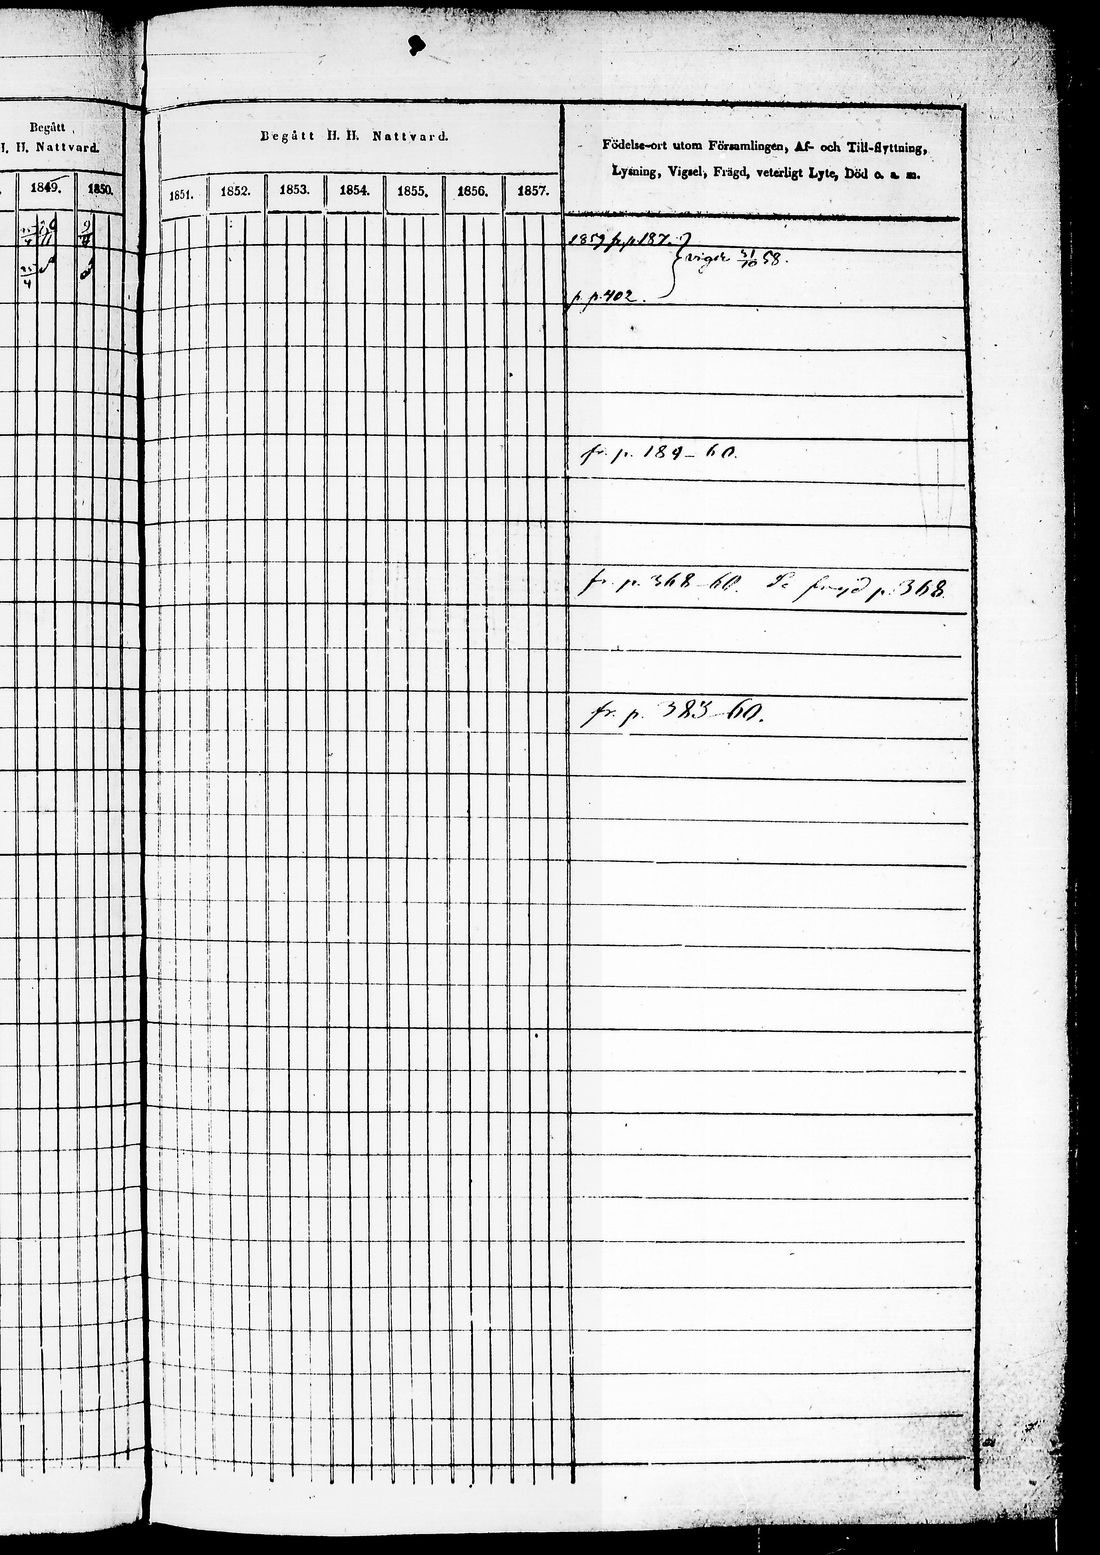 Begått
H. Nattvard.
1849. 1850.
Begått H. H. Nattvard.
1851. 1852. 1853. 1854. 1855. 1856. 1857.
Födelse-ort utom Församlingen, Af- och Till-flyttning,
Lysning, Vigsel, Frägd, veterligt Lyte, Död o. s. m.
25/4 9/4
25/4
1859 p. p 187.
vigde 31/10 58.
p. p. 402.
fr. p. 189-60.
fr. p. 368-60. Se fregd p. 368
fr. p. 383-60.